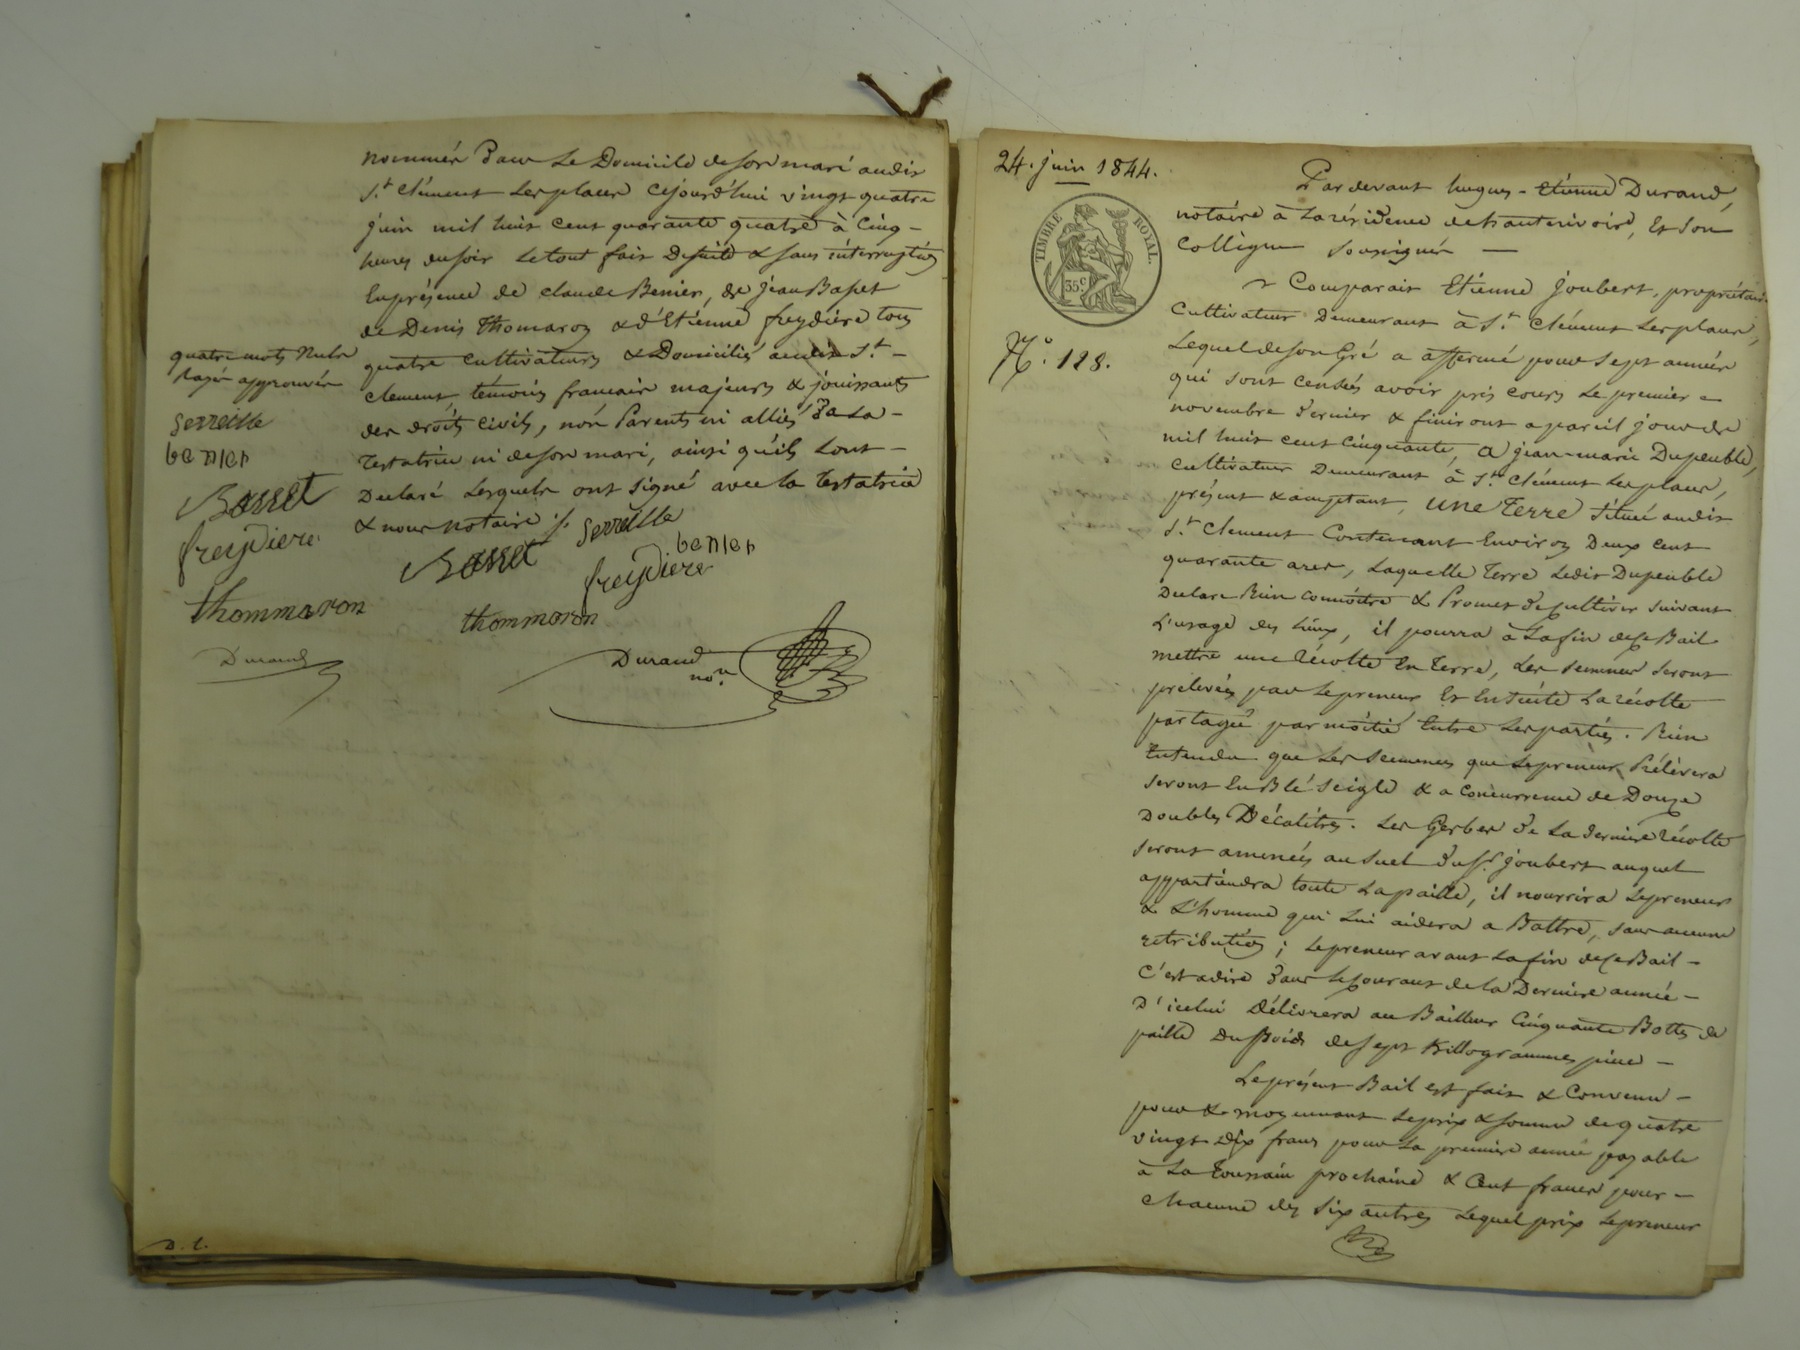 nommés dans Le Domicile de son mari audit
St. Clément Les places Cejourd'hui vingt quatre
juin mil huit cent quarante quatre à Cinq -
heures du soir Le tout fait De suite & sans intérruption
En présence de Claude Benier, de jean Basset
de Denis Thomaron & d'Etienne freydière tous
quatre cultivateurs & Domiciliés audit St. -
Clement, témoins français majeurs & jouissants
des droits civils, nón Parents ni alliés de La -
Testatrice ni de son mari, ainsi qu'ils L'ont -
Declaré Lesquels ont signé avec la Testatrice
& nous notaire ./.
quatre mots Nuls
Rayés approuvés
serreille
benier
Basset
freydiere
thommaron
Durand
serreille
benier
Basset
freydiere
thommaron
Durand
nore.
D. C.
24. juin 1844.
TIMBRE ROYAL.
35 c.
N°. 128.
Par devant hugues - Etienne Durand,
notaire à La résidence de hauterivoire, Et Son
Collègue soussignés —
Comparait Etienne Joubert, propriétaire
Cultivateur Demeurant à St. Clément Les places,
Lequel de son Gré a affermé pour sept années
qui sont censées avoir pris cours Le premier -
novembre dernier & finiront a pareil jour de
mil huit cent Cinquante, a jean-marie Dupeuble,
Cultivateur Demeurant à St. Clément Les places,
présent & acceptant, une Terre située audit
St. Clement Contenant Environ Deux cent
quarante ares, Laquelle Terre Ledit Dupeuble
Declare Bien connoitre & Promet de Cultiver suivant
L'usage des Lieux, il pourra à La fin de ce Bail
mettre une Récolte En Terre, Les semences seront
prelevées par Le preneur Et Ensuite La récolte
partagée par moitié Entre Les parties. Bien
Entendu que Les semences que Le preneur Prélèvera
seront En Blé seigle & a Concurrence de Douze
Doubles Décalitres. Les Gerbes de La dernière récolte
seront amenées au suel du Sr. Joubert auquel
appartiendra toute La paille, il nourrira Le preneur
& L'homme qui Lui aidera a Battre, sans aucune
retribution ; Le preneur avant La fin de ce Bail -
C'est adire dans Le Courant de La Dernière année -
D'icelui Délivrera au Bailleur Cinquante Bottes de
paille Du Poids de sept Killogrammes pièce -
Le présent Bail est fait & Convenu -
pour & moyennant Le prix & somme de quatre
vingt Dix francs pour La première année payable
à La Toussain prochaine & Cent francs pour -
Chacune des six autres Lequel prix Le preneur